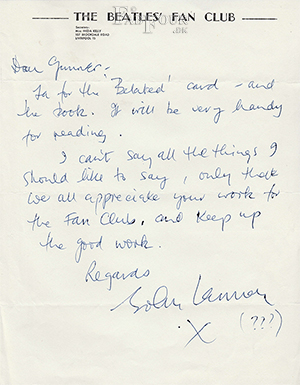 THE BEATLES' FAN CLUB
Secretary:
MISS FREDA KELLY
107 BROOKDALE ROAD
LIVERPOOL 15
Dear Gunner:-
Ta for the 'Belated' card - and
the book. It will be very handy
for reading.
I can't say all the things I
should like to say, only that
we all appreciate your work for
the Fan Club, and keep up
the good work.
Regards
John Lennon
X (???)